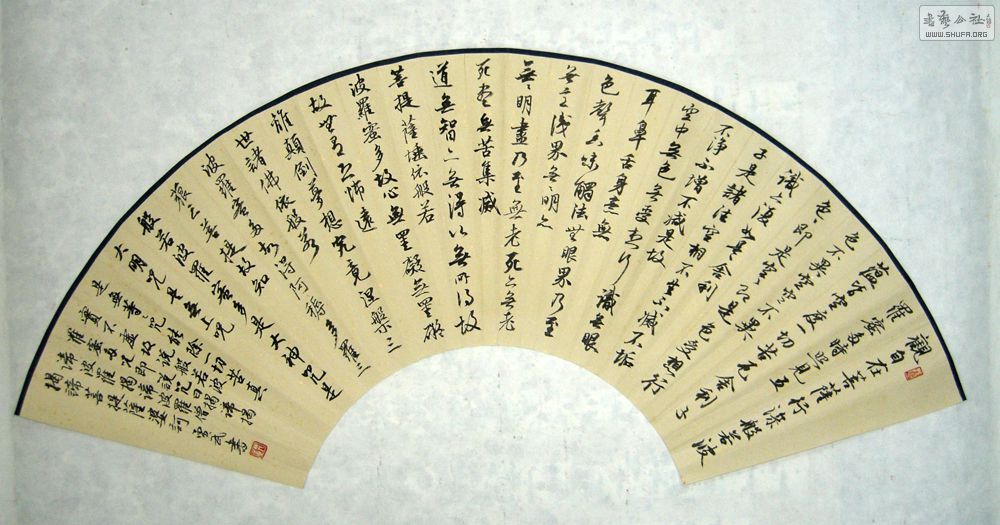 觀自在菩薩行深般若波
羅蜜多時照見五
蘊皆空度一切苦厄舍利子
色不異空空不異
色色即是空空即是色受想行
識亦復如是舍利
子是諸法空相不生不滅不垢
不淨不增不減是故
空中無色無受想行識無眼
耳鼻舌身意無
色聲香味觸法無眼界乃至
無意識界無無明亦
無無明盡乃至無老死亦無老
死盡無苦集滅
道無智亦無得以無所得故
菩提薩埵依般若
波羅蜜多故心無罣礙無罣礙
故無有恐怖遠
離顛倒夢想究竟涅槃三
世諸佛依般若
波羅蜜多故得阿耨多羅三
藐三菩提故知
般若波羅蜜多是大神咒是
大明咒是無上咒
是無等等咒能除一切苦真
實不虛故說般若波
羅蜜多咒即說咒曰揭諦揭
諦波羅揭諦波羅僧
揭諦菩提薩婆訶
書
WWW.SHUFA.ORG